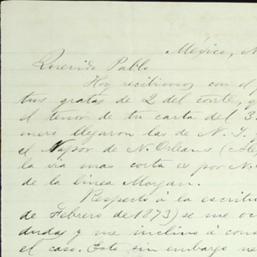 México, N
Querido Pablo
Hoy recibimos con el
tus gratas de 2 del corte,
el tenor de tu carta del 3
mero llegaron las de N.
el Vapor de N. Orleans
la via mas corta es por N.
de la linea Morgan.
Respecto a la escritu
de Febrero de 1873) se me oc
dudas y me inclino á cons
el caso. Esto sin embargo ne